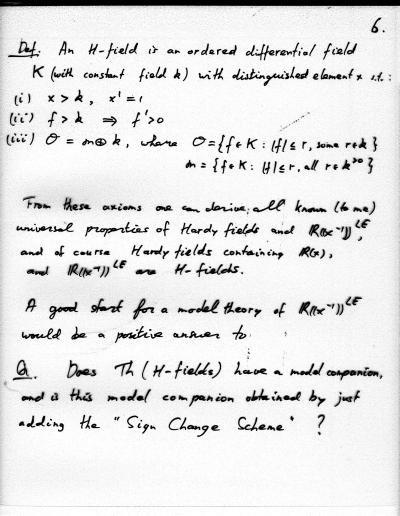 6.
Def. An H-field is an ordered differential field
K (with constant field k) with distinguished element x s.t.:
(i) x > k, x' = 1
(ii) f > k ⇒ f' > 0
(iii) O = m ⊕ k, where O = {f ∈ K : |f| ≤ r, some r ∈ k}
m = {f ∈ K : |f| ≤ r, all r ∈ k^{>0}}
From these axioms one can derive all known (to me)
universal properties of Hardy fields and ℝ((x⁻¹))^{LE},
and of course Hardy fields containing ℝ(x),
and ℝ((x⁻¹))^{LE} are H-fields.
A good start for a model theory of ℝ((x⁻¹))^{LE}
would be a positive answer to
Q. Does Th(H-fields) have a model companion,
and is this model companion obtained by just
adding the "Sign Change Scheme" ?